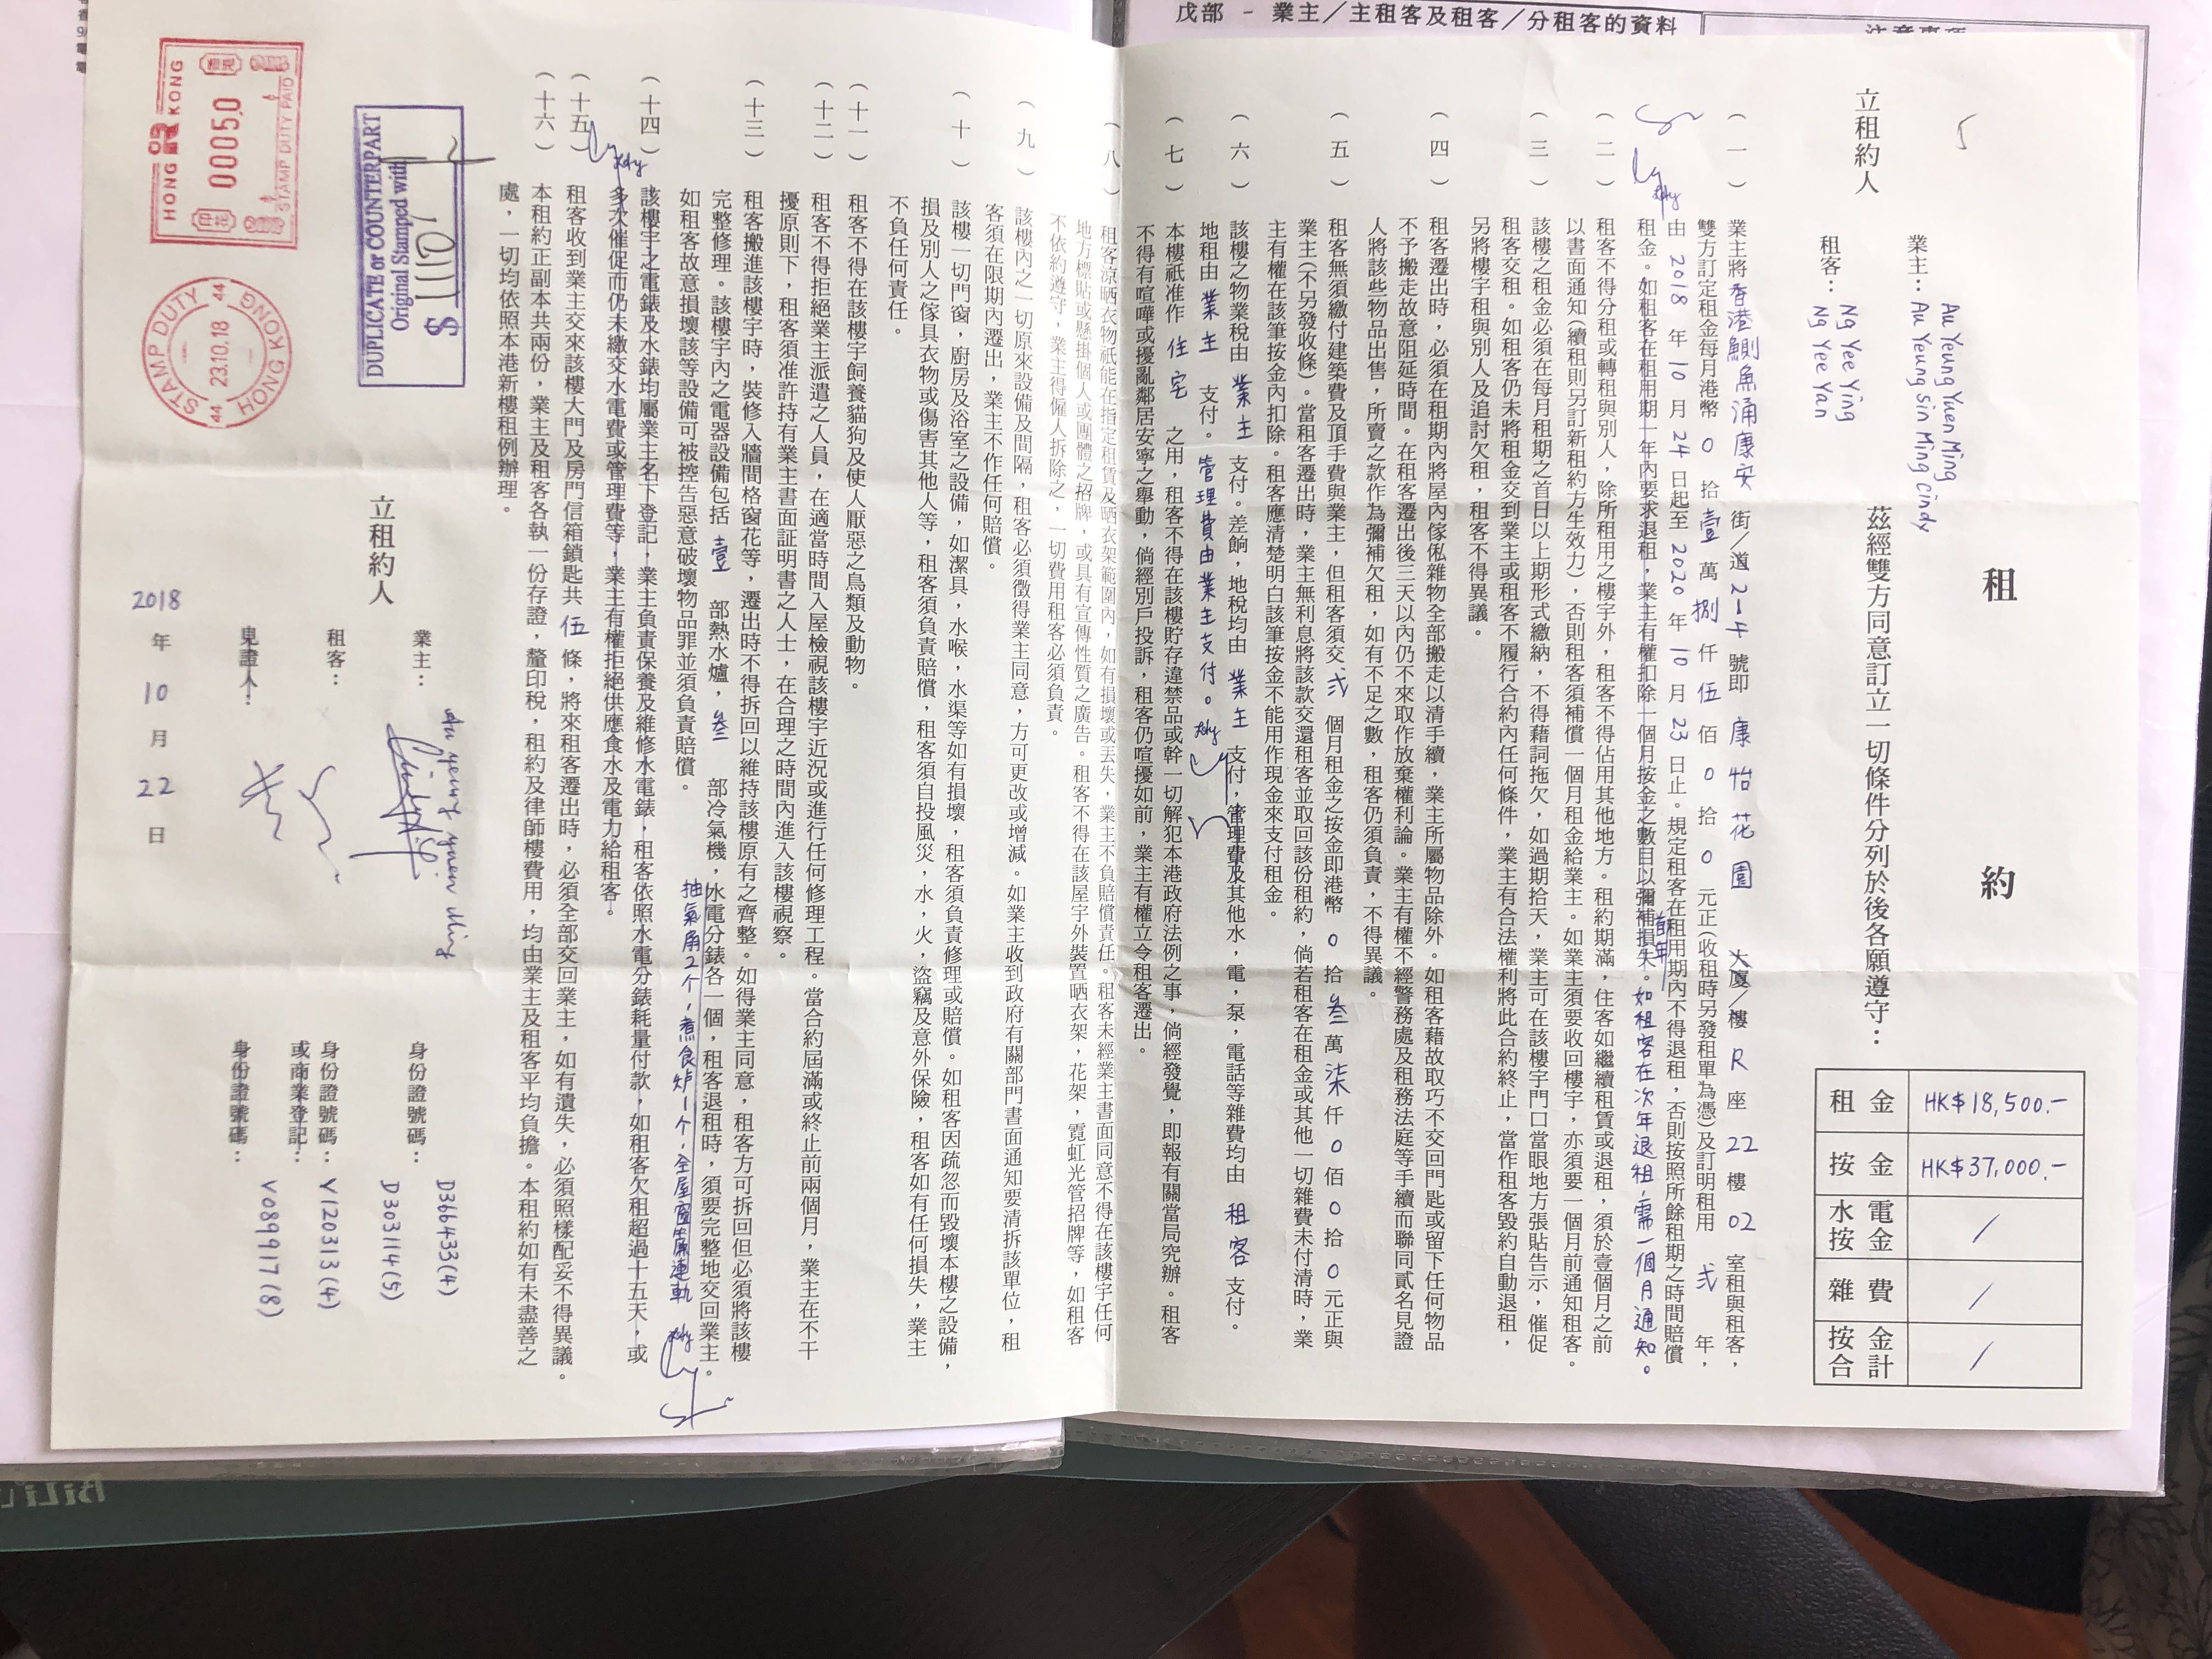 戊部 - 業主／主租客及租客／分租客的資料
注意事項
租約
立租約人
業主：Au Yeung Yuen Ming
Au Yeung Sin Ming Cindy
租客：Ng Yee Ying
Ng Yee Yan
茲經雙方同意訂立一切條件分列於後各願遵守：
租金 HK$18,500.-
按金 HK$37,000.-
水電按金 /
雜費 /
按金合計 /
(一) 業主將香港鰂魚涌康安街／道2-4號即康怡花園大廈／樓R座22樓02室租與租客，
雙方訂定租金每月港幣0拾壹萬捌仟伍佰0拾0元正(收租時另發租單為憑)及訂明租用弍年，
由2018年10月24日起至2020年10月23日止。規定租客在租用期內不得退租，否則按照所餘租期之時間賠償
租金。如租客在租用期一年內要求退租，業主有權扣除一個月按金之數目以彌補損失。如租客在次年退租，需一個月通知。
首年
(二) 租客不得分租或轉租與別人，除所租用之樓宇外，租客不得佔用其他地方。租約期滿，住客如繼續租賃或退租，須於壹個月之前
以書面通知(續租則另訂新租約方生效力)，否則租客須補償一個月租金給業主。如業主須要收回樓宇，亦須要一個月前通知租客。
(三) 該樓之租金必須在每月租期之首日以上期形式繳納，不得藉詞拖欠，如過期拾天，業主可在該樓宇門口當眼地方張貼告示，催促
租客交租。如租客仍未將租金交到業主或租客不履行合約內任何條件，業主有合法權利將此合約終止，當作租客毀約自動退租，
另將樓宇租與別人及追討欠租，租客不得異議。
(四) 租客遷出時，必須在租期內將屋內傢俬雜物全部搬走以清手續，業主所屬物品除外。如租客藉故取巧不交回門匙或留下任何物品
不予搬走故意阻延時間。在租客遷出後三天以內仍不來取作放棄權利論。業主有權不經警務處及租務法庭等手續而聯同貳名見證
人將該些物品出售，所賣之款作為彌補欠租，如有不足之數，租客仍須負責，不得異議。
(五) 租客無須繳付建築費及頂手費與業主，但租客須交弍個月租金之按金即港幣0拾叁萬柒仟0佰0拾0元正與
業主(不另發收條)。當租客遷出時，業主無利息將該款交還租客並取回該份租約，倘若租客在租金或其他一切雜費未付清時，業
主有權在該筆按金內扣除。租客應清楚明白該筆按金不能用作現金來支付租金。
(六) 該樓之物業稅由業主支付。差餉，地稅均由業主支付，管理費及其他水，電，泵，電話等雜費均由租客支付。
地租由業主支付。管理費由業主支付。
(七) 本樓祇准作住宅之用，租客不得在該樓貯存違禁品或幹一切觧犯本港政府法例之事，倘經發覺，即報有關當局究辦。租客
不得有喧嘩或擾亂鄰居安寧之舉動，倘經別戶投訴，租客仍喧擾如前，業主有權立令租客遷出。
(八) 租客涼晒衣物祇能在指定租賃及晒衣架範圍內，如有損壞或丟失，業主不負賠償責任。租客未經業主書面同意不得在該樓宇任何
地方標貼或懸掛個人或團體之招牌，或具有宣傳性質之廣告。租客不得在該屋宇外裝置晒衣架，花架，霓虹光管招牌等，如租客
不依約遵守，業主得僱人拆除之，一切費用租客必須負責。
(九) 該樓內之一切原來設備及間隔，租客必須徵得業主同意，方可更改或增減。如業主收到政府有關部門書面通知要清拆該單位，租
客須在限期內遷出，業主不作任何賠償。
(十) 該樓一切門窗，廚房及浴室之設備，如潔具，水喉，水渠等如有損壞，租客須負責修理或賠償。如租客因疏忽而毀壞本樓之設備，
損及別人之傢具衣物或傷害其他人等，租客須負責賠償，租客須自投風災，水，火，盜竊及意外保險，租客如有任何損失，業主
不負任何責任。
(十一) 租客不得在該樓宇飼養貓狗及使人厭惡之鳥類及動物。
(十二) 租客不得拒絕業主派遣之人員，在適當時間入屋檢視該樓宇近況或進行任何修理工程。當合約屆滿或終止前兩個月，業主在不干
擾原則下，租客須准許持有業主書面証明書之人士，在合理之時間內進入該樓視察。
(十三) 租客搬進該樓宇時，裝修入牆間格窗花等，遷出時不得拆回以維持該樓原有之齊整。如得業主同意，租客方可拆回但必須將該樓
完整修理。該樓宇內之電器設備包括壹部熱水爐，叁部冷氣機，水電分錶各一個，租客退租時，須要完整地交回業主。
抽氣扇2个，煮食炉1个，全屋窗簾連軌
如租客故意損壞該等設備可被控告惡意破壞物品罪並須負責賠償。
(十四) 該樓宇之電錶及水錶均屬業主名下登記，業主負責保養及維修水電錶，租客依照水電分錶耗量付款，如租客欠租超過十五天，或
多次催促而仍未繳交水電費或管理費等，業主有權拒絕供應食水及電力給租客。
(十五) 租客收到業主交來該樓大門及房門信箱鎖匙共伍條，將來租客遷出時，必須全部交回業主，如有遺失，必須照樣配妥不得異議。
(十六) 本租約正副本共兩份，業主及租客各執一份存證，釐印稅，租約及律師樓費用，均由業主及租客平均負擔。本租約如有未盡善之
處，一切均依照本港新樓租例辦理。
立租約人
業主：Au Yeung Yuen Ming
身份證號碼：D366433(4)
D303114(5)
租客：
身份證號碼：
或商業登記：V120313(4)
見證人：
身份證號碼：V089917(8)
2018年10月22日
DUPLICATE or COUNTERPART
Original Stamped with
$
HONG KONG
香港
00050
印花
STAMP DUTY PAID
STAMP DUTY
HONG KONG
44
23.10.18
44